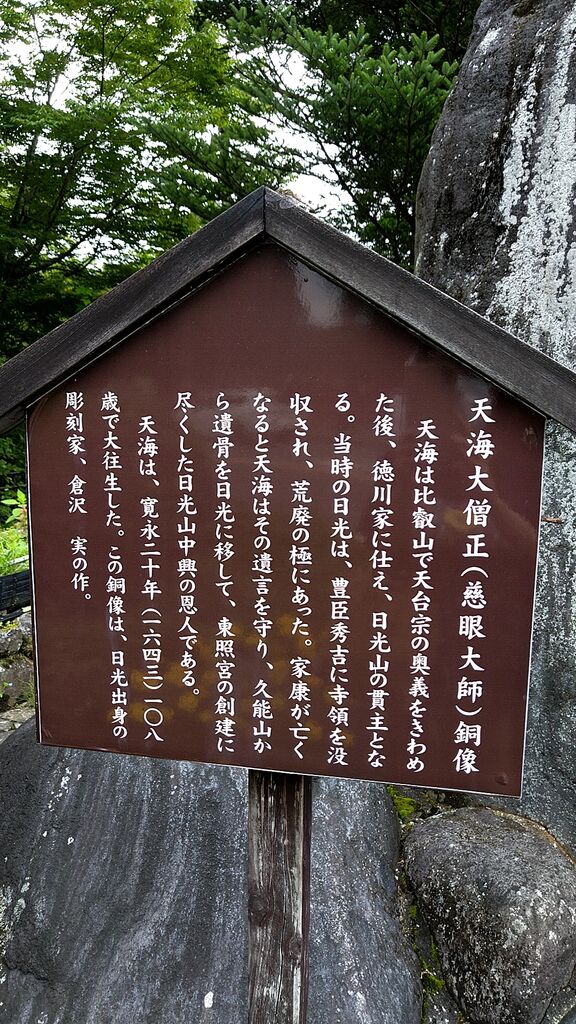 天海大僧正(慈眼大師)銅像
天海は比叡山で天台宗の奥義をきわめ
た後、徳川家に仕え、日光山の貫主とな
る。当時の日光は、豊臣秀吉に寺領を没
収され、荒廃の極にあった。家康が亡く
なると天海はその遺言を守り、久能山か
ら遺骨を日光に移して、東照宮の創建に
尽くした日光山中興の恩人である。
天海は、寛永二十年(一六四三)一〇八
歳で大往生した。この銅像は、日光出身の
彫刻家、倉沢 実の作。